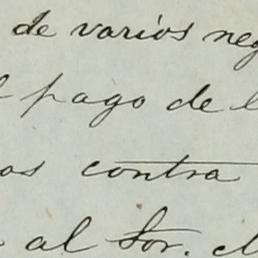 de varios neg
pago de l
os contra
al Sor. M